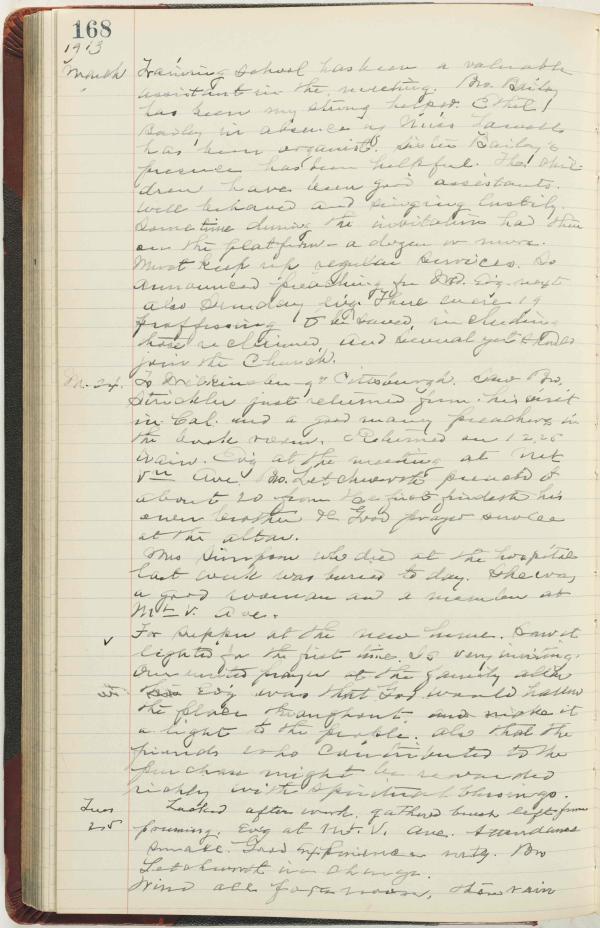 168
1913
March Training School has been a valuable
assistant in the meeting. Bro. Bailey
has been my strong helper. Ethel
Bailey in absence of Miss
has been organist. Sister Bailey's
presence has been helpful. The chil-
dren have been good assistants.
Well behaved and singing lustily.
Sometime during the invitation had them
on the platform - a dozen or more.
Must keep up regular services. So
announced preaching for Wed. Evg. next
also Sunday evg. There were 19
proffessing to be saved, including
those reclaimed, and several yet to
join the Church.
M. 24. To Pittsburgh. Saw Bro.
Strickler just returned from his visit
in Cal. and a good many preachers in
the book room. Returned on 12.25
train. Evg at the meeting at Mt
Vn Ave. Bro. Letchworth preached to
about 20 from the first findeth his
own brother &c Good prayer service
at the altar.
Mrs Simpson who died at the hospital
last week was buried to day. She was
a good woman and a member at
Mt V. Ave.
v For supper at the new home. Saw it
lighted for the first time. Is very inviting.
Our united prayer at the family altar
this Evg was that God would hallow
the place throughout and make it
a light to the people. also that the
friends who contributed to the
purchase might be rewarded
richly with spiritual blessings.
Tues Looked after work, gathered brush left from
25 pruning. Evg at Mt. V. Ave. Attendance
small. Good Experience mtg. Bro
Letchworth in charge.
Wind all forenoon, then rain